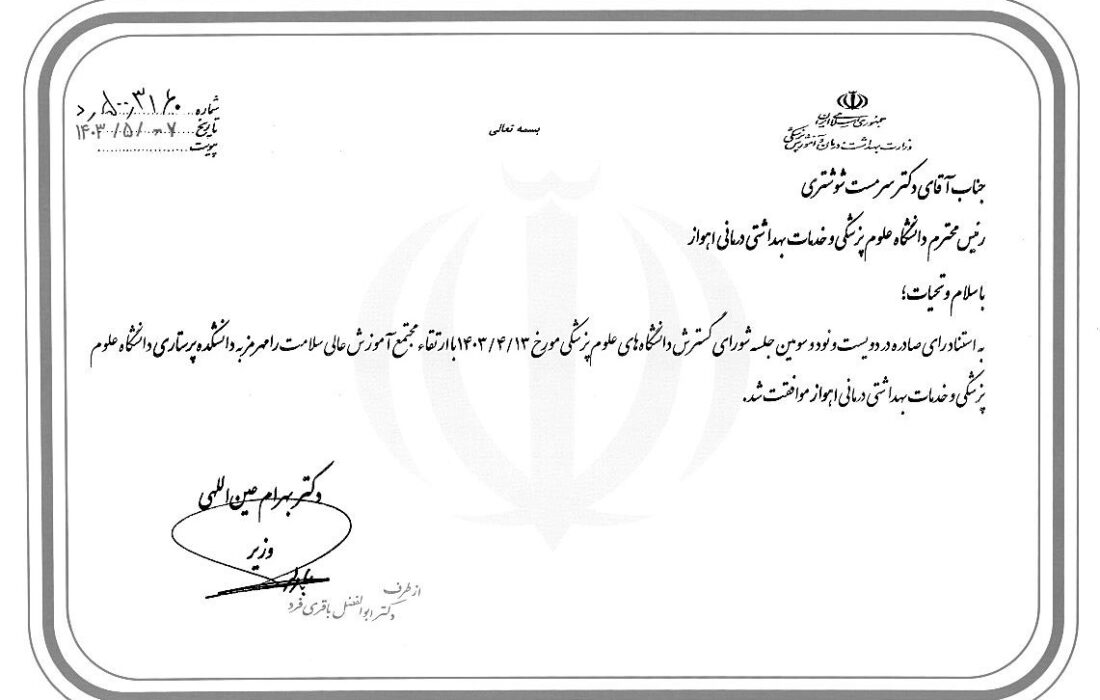 جمهوری اسلامی ایران
وزارت بهداشت، درمان و آموزش پزشکی
بسمه تعالی
شماره
تاریخ ۱۴۰۳/۵/۰۷
پیوست
جناب آقای دکتر سرمست شوشتری
رئیس محترم دانشگاه علوم پزشکی و خدمات بهداشتی درمانی اهواز
با سلام و تحیات؛
به استناد رای صادره در دویست و نود و سومین جلسه شورای گسترش دانشگاه های علوم پزشکی مورخ ۱۴۰۳/۴/۱۳ با ارتقاء مجتمع آموزش عالی سلامت رامهرمز به دانشکده پرستاری دانشگاه علوم
پزشکی و خدمات بهداشتی درمانی اهواز موافقت شد.
دکتر بهرام عین اللهی
وزیر
از طرف
دکتر ابوالفضل باقری فرد